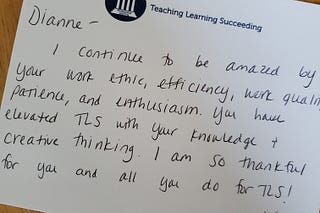 Teaching Learning Succeeding
Dianne -
I continue to be amazed by
your work ethic, efficiency, work quality,
patience, and enthusiasm. You have
elevated TLS with your knowledge +
creative thinking. I am so thankful
for you and all you do for TLS!